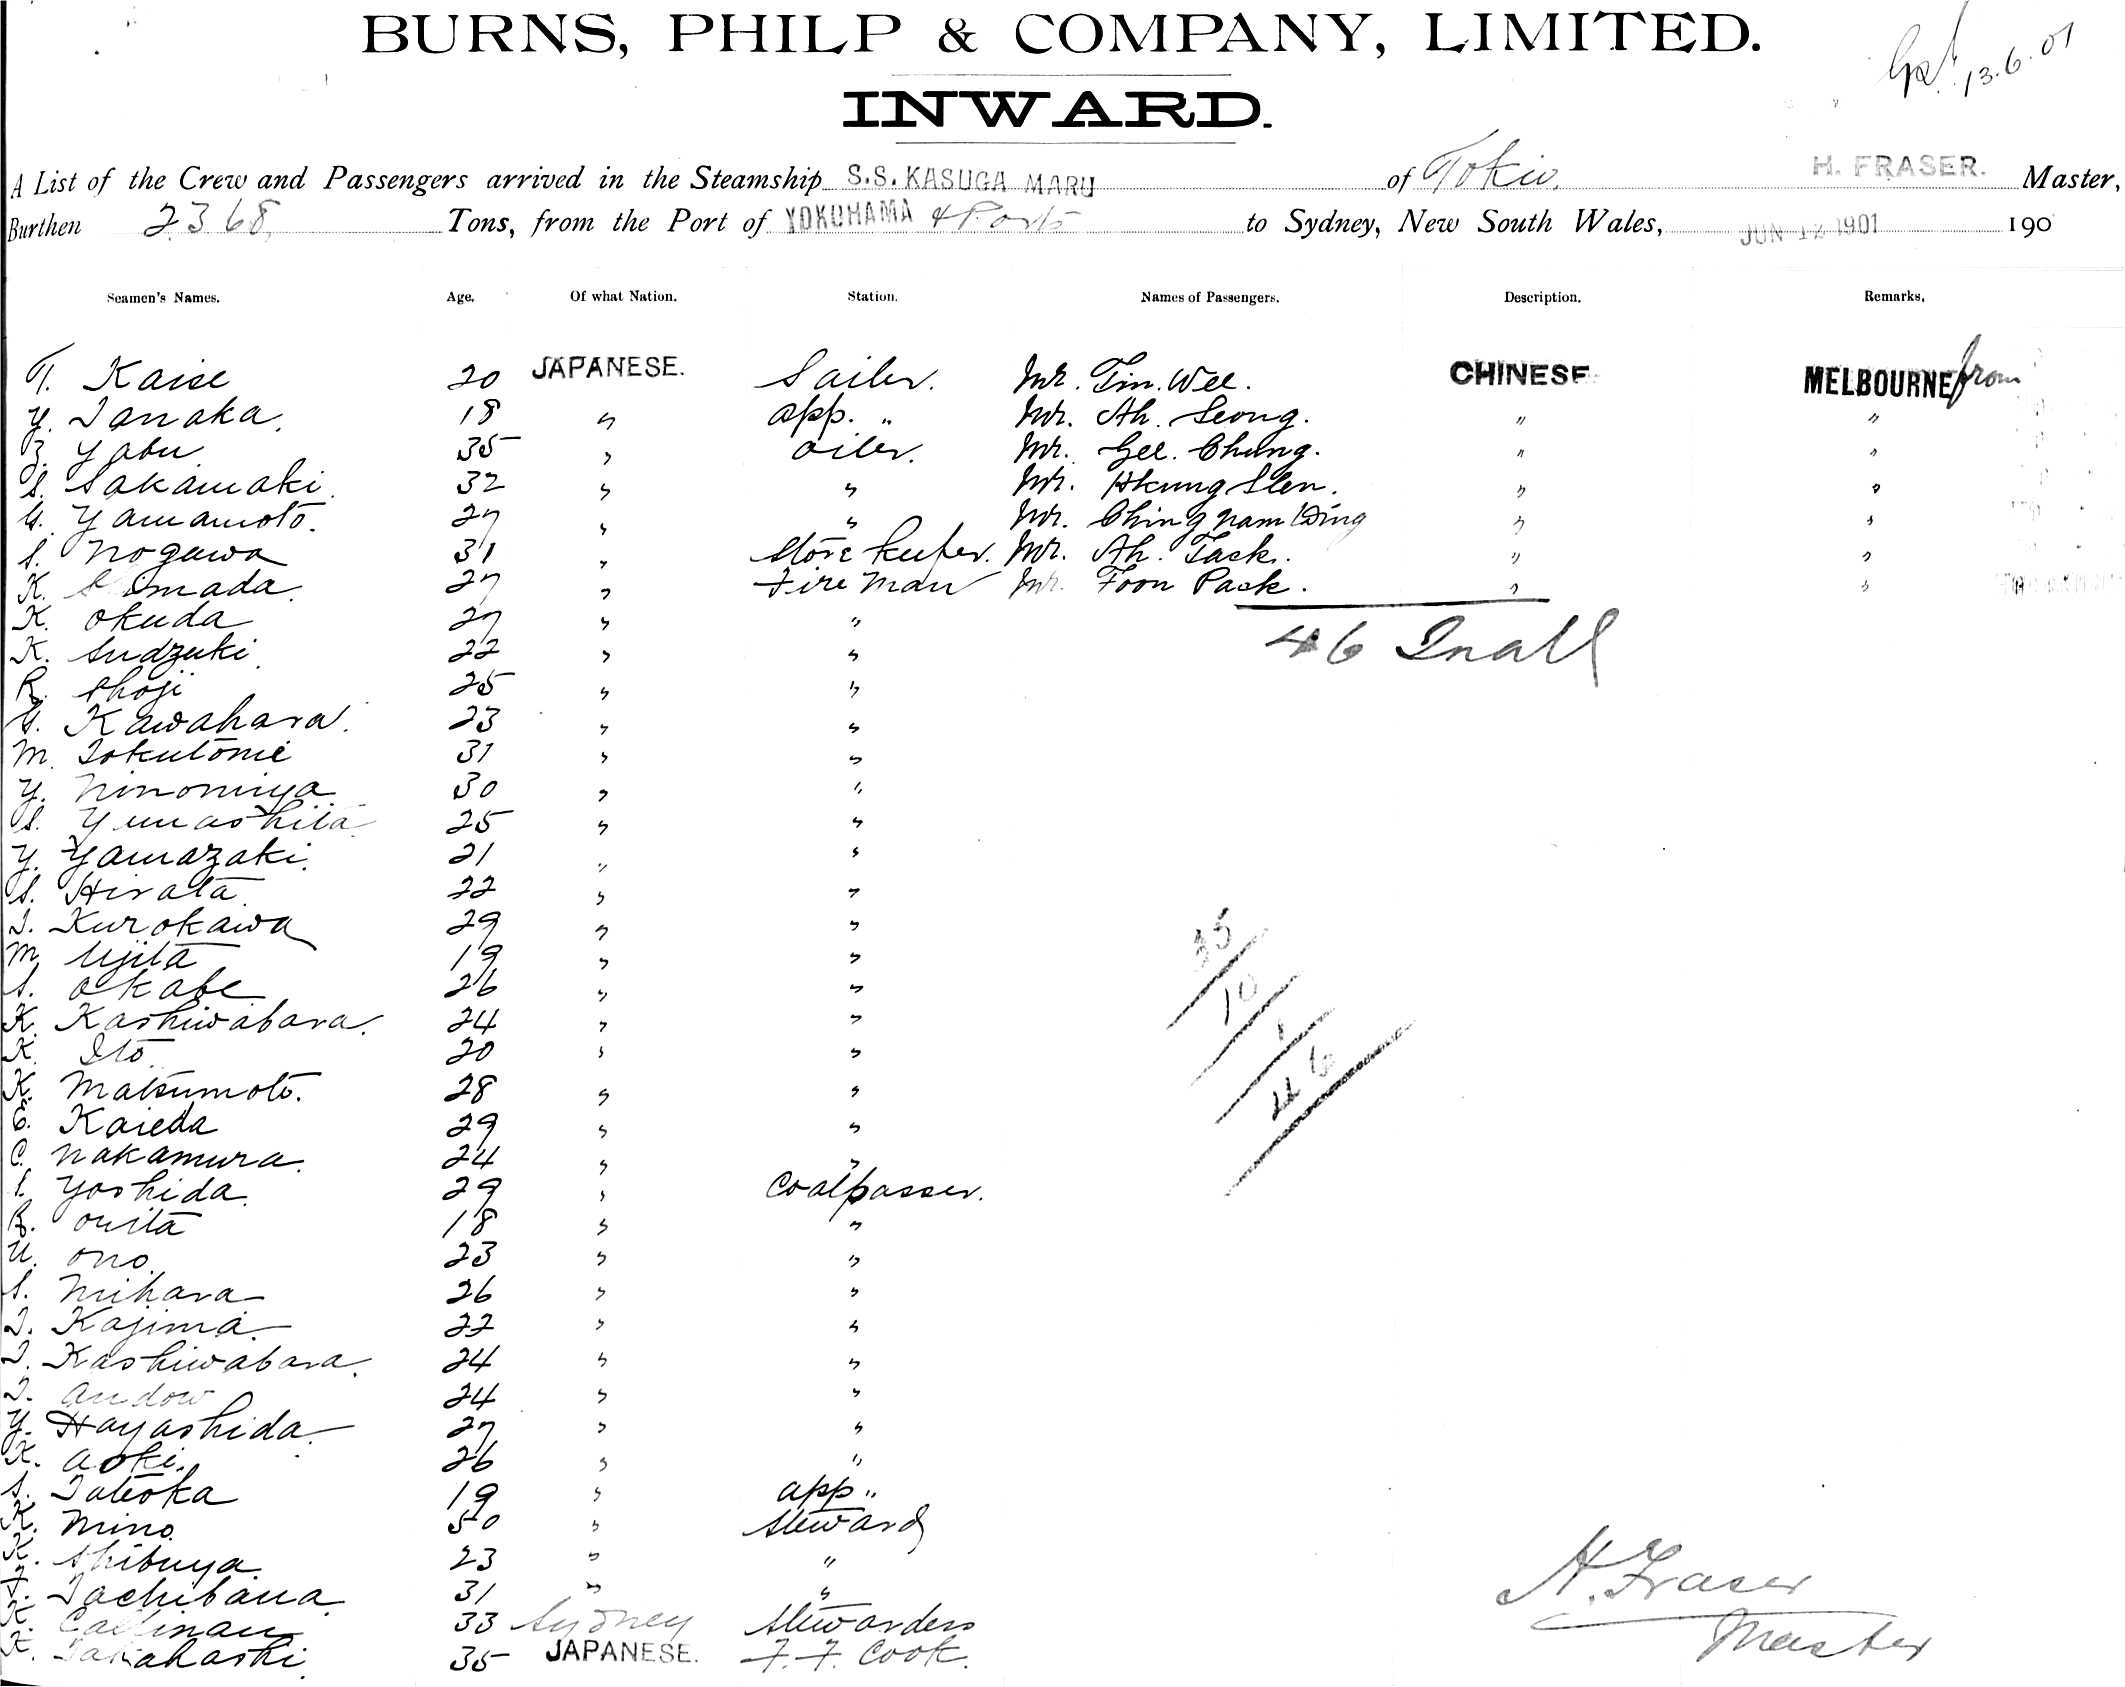 BURNS, PHILP & COMPANY, LIMITED.
13.6.01
INWARD.
A List of the Crew and Passengers arrived in the Steamship S.S. KASUGA MARU of Tokio. H. FRASER. Master,
Burthen 2368 Tons, from the Port of YOKOHAMA & Ports to Sydney, New South Wales, JUN 12 1901 190
Seamen's Names. Age. Of what Nation. Station. Names of Passengers. Description. Remarks.
T. Kaise 20 JAPANESE. Sailer. Mr. Tin. Wee. CHINESE MELBOURNE from
Y. Tanaka. 18 " app. " Mr. Ah. Leong. " "
Z. Yabu 35 " oiler. Mr. Gee. Chung. " "
S. Sakamaki. 32 " " Mr. Hkung Slen. " "
G. Yamamoto. 27 " " Mr. Ching nam Wing " "
S. Nogawa 31 " Store keeper. Mr. Ah. Tack. " "
K. mada. 27 " Fire man Mr. Foon Pack. " "
K. Okuda 27 " "
46 In all
K. Sudzuki. 22 " "
R. Shoji 25 " "
G. Kawahara. 23 " "
M. Tokutomie 31 " "
Y. Ninomiya 30 " "
S. Yamashita 25 " "
Y. Yamazaki. 21 " "
S. Hirata. 22 " "
T. Kurokawa 29 " "
M. Ujita 19 " "
S. Okabe 26 " "
K. Kashiwabara. 24 " "
K. Ito 20 " "
K. Matsumoto. 28 " "
E. Kaieda 29 " "
C. Nakamura. 24 " "
S. Yoshida. 29 " Coalpasser.
R. Orita 18 " "
U. Ono. 23 " "
S. Mihara 26 " "
T. Kajima. 22 " "
T. Kashiwabara. 24 " "
T. Andow 24 " "
Y. Hayashida. 27 " "
K. Aoki. 26 " "
S. Tateoka 19 " app "
K. Mino. 50 " Steward
K. Shibuya. 23 " "
T. Tachibana. 31 " "
K. 33 Sydney Stewardess
K. Takahashi. 35 JAPANESE. F. F. Cook.
35
10
1
46
H. Fraser
Master